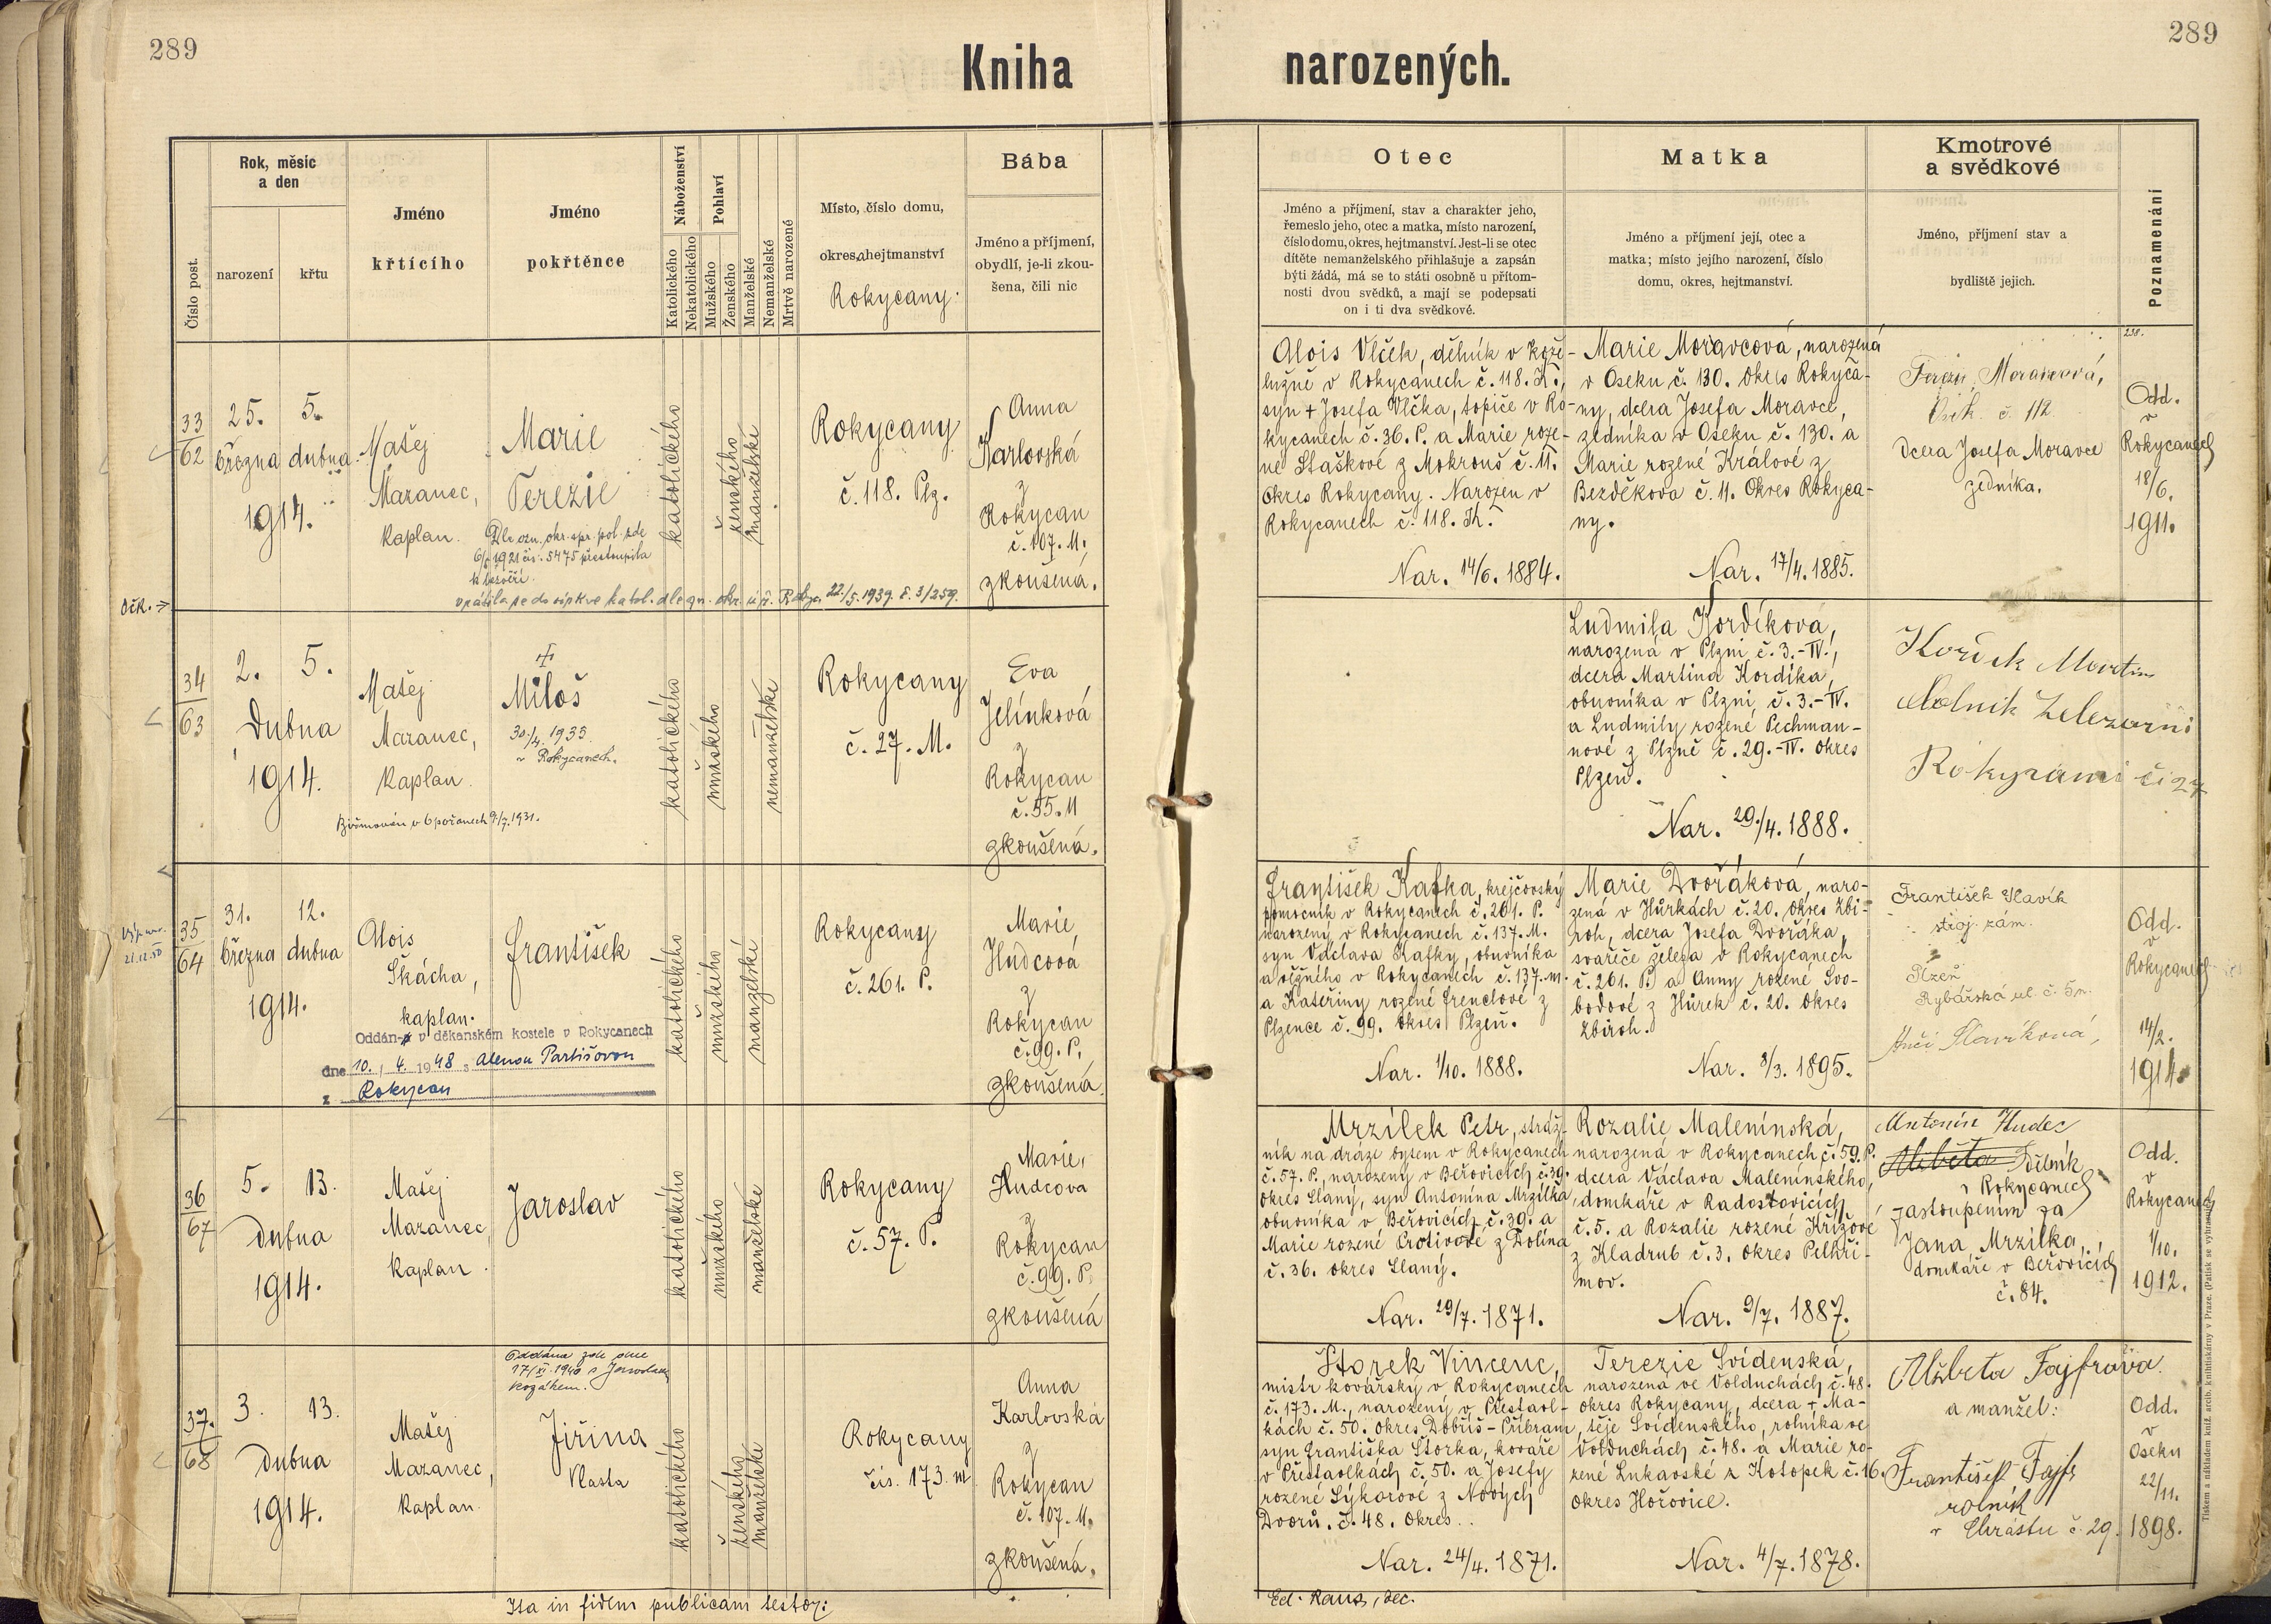 289
289
Kniha
narozených.
Číslo post.
Rok, měsíc
a den
narození
křtu
Jméno
křtícího
Jméno
pokřtěnce
Náboženství
Katolického
Nekatolického
Pohlaví
Mužského
Ženského
Manželské
Nemanželské
Mrtvě narozené
Místo, číslo domu,
okres, hejtmanství
Rokycany.
Bába
Jméno a příjmení,
obydlí, je-li zkou-
šena, čili nic
Otec
Jméno a příjmení, stav a charakter jeho,
řemeslo jeho, otec a matka, místo narození,
číslo domu, okres, hejtmanství. Jest-li se otec
dítěte nemanželského přihlašuje a zapsán
býti žádá, má se to státi osobně u přítom-
nosti dvou svědků, a mají se podepsati
on i ti dva svědkové.
Matka
Jméno a příjmení její, otec a
matka; místo jejího narození, číslo
domu, okres, hejtmanství.
Kmotrové
a svědkové
Jméno, příjmení stav a
bydliště jejich.
Poznamenání
33
62
25.
5.
března dubna
1914.
Matěj
Mazanec,
kaplan.
Marie
Terezie
Dle ozn. okr. spr. pol. zde
6/6 1921 čís. 5475 přestoupila
k bezvěří.
vrátila se do církve katol. dle ozn. okr. úř. Rokyc. 22./5. 1939. č. 3/259.
katolického
ženského
manželské
Rokycany
č. 118. Plz.
Anna
Karlovská
z
Rokycan
č. 107. M.
zkoušená.
Alois Vlček, dělník v kože-
lužně v Rokycanech č. 118. Kr.,
syn + Josefa Vlčka, topiče v Ro-
kycanech č. 36. P. a Marie roze-
né Staškové z Mokrouš č. 11.
Okres Rokycany. Narozen v
Rokycanech č. 118. Kr.
Nar. 14/6. 1884.
Marie Moravcová, narozená
v Oseku č. 130. okres Rokyca-
ny, dcera Josefa Moravce,
zedníka v Oseku č. 130. a
Marie rozené Králové z
Bezděkova č. 11. Okres Rokyca-
ny.
Nar. 17/4. 1885.
Terezie Moravcová,
Osek č. 112
dcera Josefa Moravce
zedníka.
238.
Odd.
v
Rokycanech
18/6.
1911.
Očk. →
34
63
2.
5.
Dubna
1914.
Matěj
Mazanec,
kaplan.
Miloš
30./4. 1935.
v Rokycanech.
Biřmován v Spořanech 9./7. 1931.
katolického
mužského
nemanželské
Rokycany
č. 27. M.
Eva
Jelínková
z
Rokycan
č. 55. M
zkoušená.
Ludmila Kordíková,
narozená v Plzni č. 3.-IV.,
dcera Martina Kordíka,
obuvníka v Plzni č. 3.-IV.
a Ludmily rozené Pechman-
nové z Plzně č. 29.-IV. okres
Plzeň.
Nar. 29./4. 1888.
Kordík Martin
dělník železární
Rokycani či 27
35
64
31.
12.
března dubna
1914.
Alois
Škácha,
kaplan.
František
Oddán v děkanském kostele v Rokycanech
dne 10. 4. 1948 s Alenou Partišovou
z Rokycan
katolického
mužského
manželské
Rokycany
č. 261. P.
Marie
Hudcová
z
Rokycan
č. 99. P.
zkoušená.
František Kafka, krejčovský
pomocník v Rokycanech č. 261. P.
narozený v Rokycanech č. 137. M.
syn Václava Kafky, obuvníka
a věžného v Rokycanech č. 137. M.
a Kateřiny rozené Frenclové z
Plzence č. 99. okres Plzeň.
Nar. 1/10. 1888.
Marie Dvořáková, naro-
zená v Hůrkách č. 20. okres Zbi-
roh, dcera Josefa Dvořáka,
svařeče železa v Rokycanech
č. 261. P. a Anny rozené Svo-
bodové z Hůrek č. 20. okres
Zbiroh.
Nar. 8/3. 1895.
František Slavík
stroj. zám.
Plzeň
Rybářská ul. č. 5n.
Slavíková,
Odd.
v
Rokycanech
14/2.
1914.
36
67
5.
13.
dubna
1914.
Matěj
Mazanec
kaplan.
Jaroslav
katolického
mužského
manželské
Rokycany
č. 57. P.
Marie
Hudcova
z
Rokycan
č. 99. P.
zkoušená
Mrzílek Petr, stráž-
ník na dráze bytem v Rokycanech
č. 57. P., narozený v Beřovicích č. 39.
okres Slaný, syn Antonína Mrzílka,
obuvníka v Beřovicích č. 39. a
Marie rozené Protivové z Dolína
č. 36. okres Slaný.
Nar. 29/7. 1871.
Rozalie Malenínská,
narozená v Rokycanech č. 59. P.
dcera Václava Malenínského,
domkáře v Radostovicích
č. 5. a Rozalie rozené Křížové
z Kladrub č. 3. okres Pelhři-
mov.
Nar. 9/7. 1887.
Antonín Hudec
Alžběta dělník
v Rokycanech
zastoupením za
Jana Mrzílka,
domkáře v Beřovicích
č. 84.
Odd.
v
Rokycanech
1/10.
1912.
37.
68
3.
13.
dubna
1914.
Matěj
Mazanec,
kaplan.
Oddána zde dne
17/XI. 1940 s Jaroslavem
Kozákem.
Jiřina
Vlasta
katolického
ženského
manželské
Rokycany
čís. 173. M.
Anna
Karlovská
z
Rokycan
č. 107. M.
zkoušená.
Štorek Vincenc,
mistr kovářský v Rokycanech
č. 173. M., narozený v Přestavl-
kách č. 50. okres Dobříš-Příbram,
syn Františka Štorka, kováře
v Přestavlkách č. 50. a Josefy
rozené Sýkorové z Nových
Dvorů. č. 48. okres
Nar. 24/4. 1871.
Terezie Svídenská,
narozená ve Volduchách č. 48.
okres Rokycany, dcera + Ma-
těje Svídenského, rolníka ve
Volduchách č. 48. a Marie ro-
zené Lukavské z Kotopek č. 16.
okres Hořovice.
Nar. 4/7. 1878.
Alžbeta Fajfrová
a manžel:
František Fajfr
rolník
v Chrástu č. 29.
Odd.
v
Oseku
22/11.
1898.
Ita in fidem publicam testor:
Ed. Raus, dec.
Tiskem a nákladem kníž. arcib. knihtiskárny v Praze. (Patisk se vyhrazuje.)